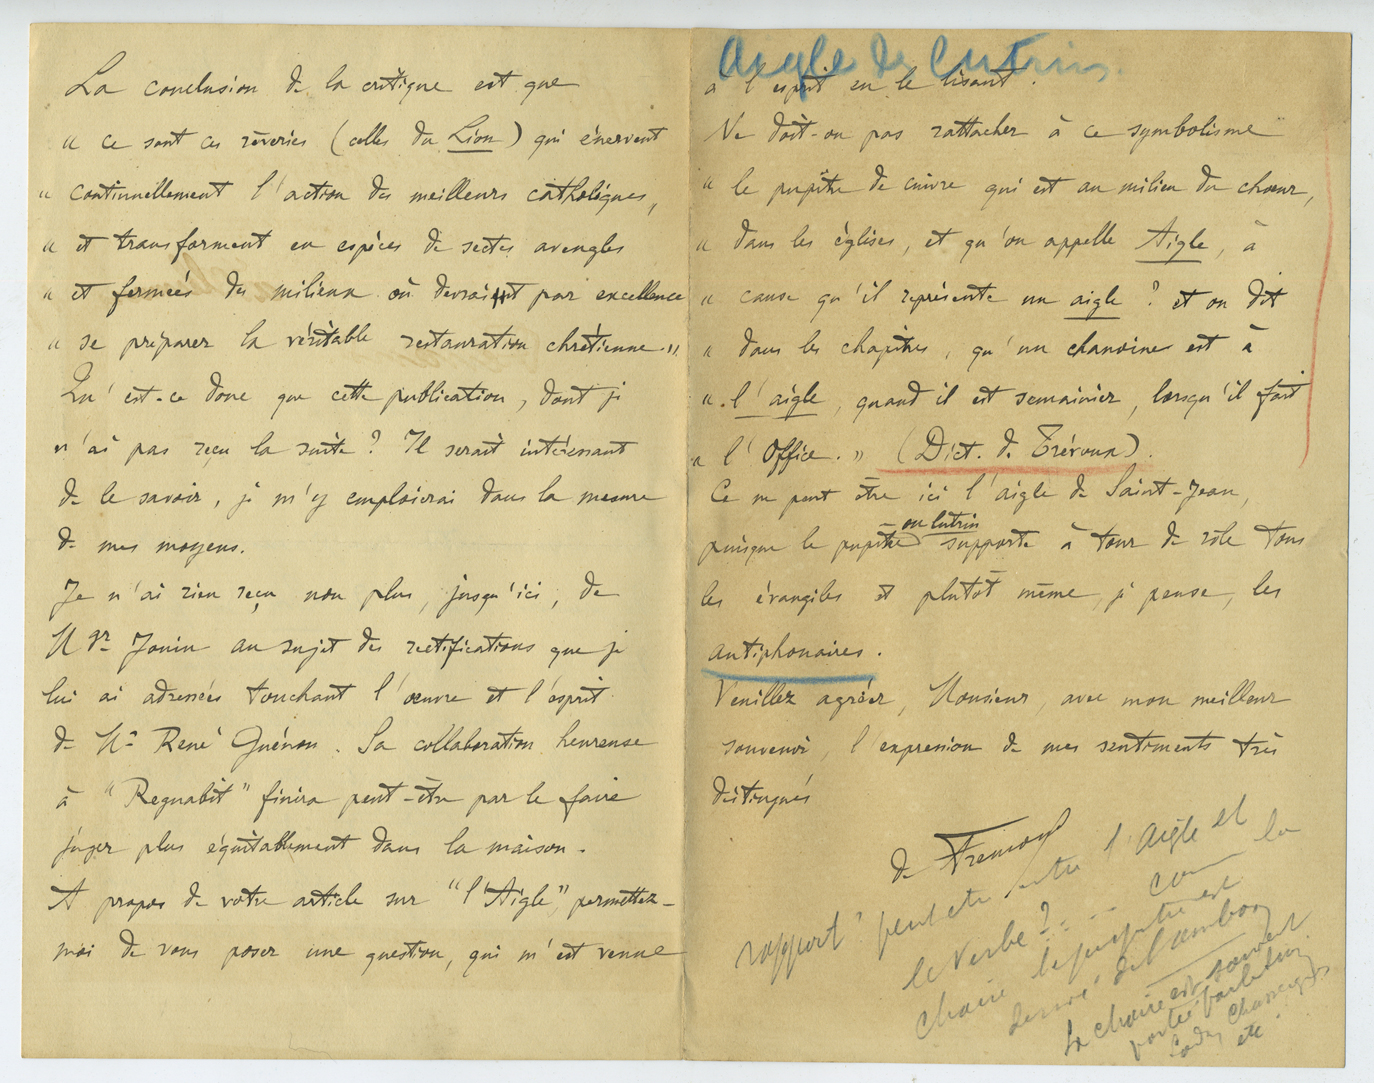 La conclusion de la critique est que
« ce sont ces rêveries (celles du Lion) qui énervent
« continuellement l'action des meilleurs catholiques,
« et transforment en espèces de sectes aveugles
« et fermées des milieux où devraient par excellence
« se préparer la véritable restauration chrétienne. »
Qu'est-ce donc que cette publication, dont je
n'ai pas reçu la suite ? Il serait intéressant
de le savoir, je m'y emploierai dans la mesure
de mes moyens.
Je n'ai rien reçu non plus, jusqu'ici, de
Mgr Jouin au sujet des rectifications que je
lui ai adressées touchant l'œuvre et l'esprit
de Mr René Guénon. Sa collaboration heureuse
à "Regnabit" finira peut-être par le faire
juger plus équitablement dans la maison.
A propos de votre article sur "l'Aigle", permettez-
moi de vous poser une question, qui m'est venue
Aigle de Lutrins.
à l'esprit en le lisant.
Ne doit-on pas rattacher à ce symbolisme
« le pupitre de cuivre qui est au milieu du chœur,
« dans les églises, et qu'on appelle Aigle, à
« cause qu'il représente un aigle ? et on dit
« dans les chapitres, qu'un chanoine est à
« l'aigle, quand il est semainier, lorsqu'il fait
« l'Office. » (Dict. de Trévoux).
Ce ne peut être ici l'aigle de Saint-Jean,
puisque le pupitre ou lutrin supporte à tour de rôle tous
les évangiles et plutôt même, je pense, les
antiphonaires.
Veuillez agréer, Monsieur, avec mon meilleur
souvenir, l'expression de mes sentiments très
distingués
de Frémond
rapport peut etre entre l'Aigle et
le Verbe ? ... com la
chaire le pupitre est
derivé de l'ambon
La chaire est souvent
portée par
etc.